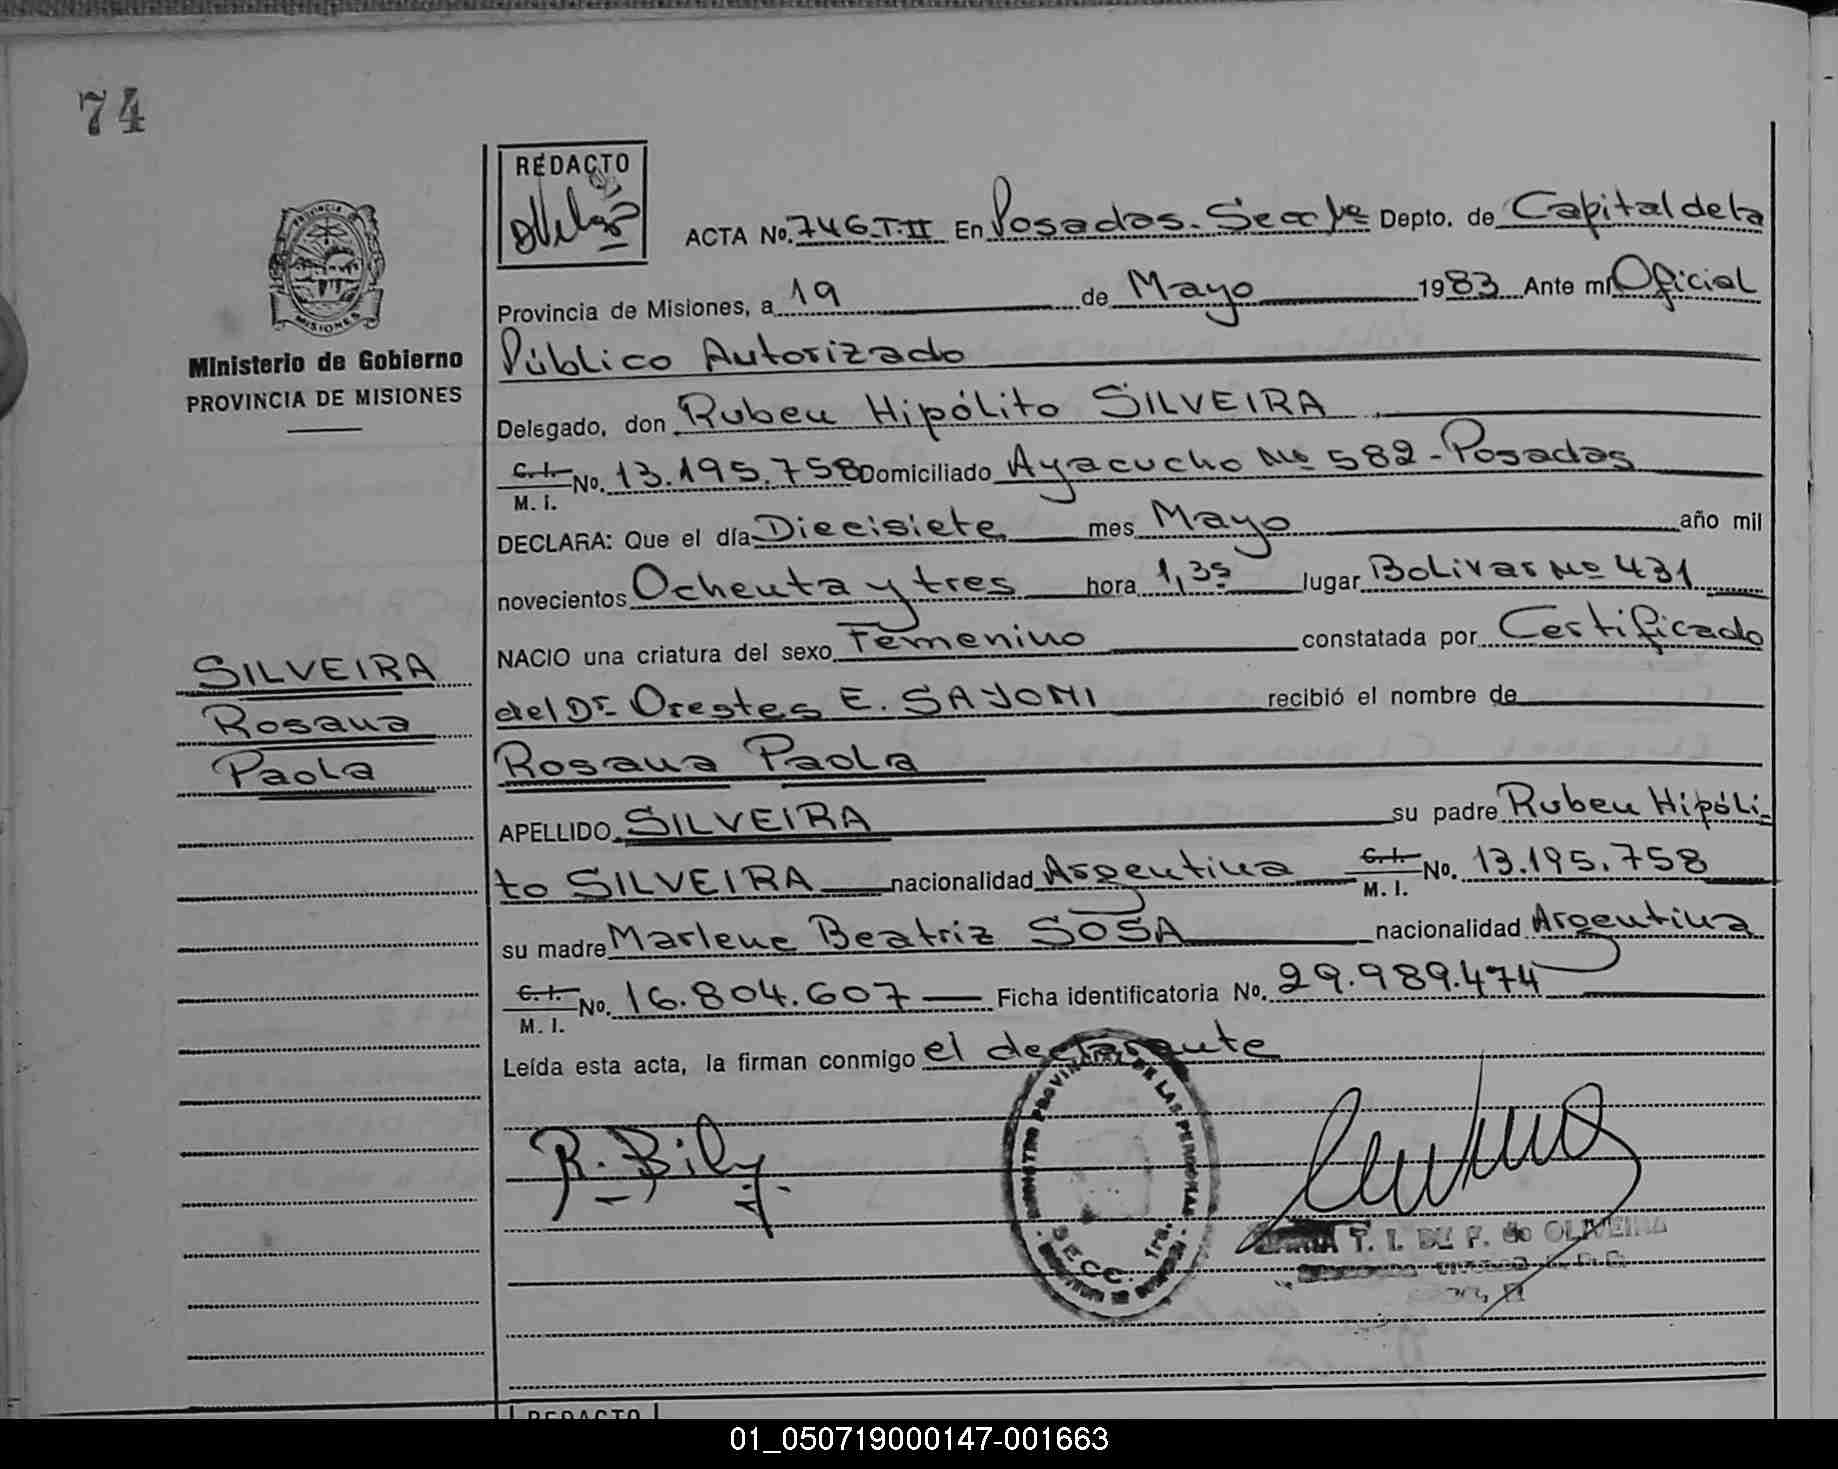 74
REDACTO
ACTA No. 746.T.II En Posadas. Secc 1ra Depto. de Capital de la
Provincia de Misiones, a 19 de Mayo 1983 Ante mí Oficial
Ministerio de Gobierno
PROVINCIA DE MISIONES
Público Autorizado
Delegado, don Ruben Hipólito SILVEIRA
C.I. No. 13.195.758 Domiciliado Ayacucho Nº 582 - Posadas
M. I.
DECLARA: Que el día Diecisiete mes Mayo año mil
novecientos Ochenta y tres hora 1,35 lugar Bolivar Nº 431
NACIO una criatura del sexo Femenino constatada por Certificado
SILVEIRA
Rosana
Paola
del Dr. Orestes E. SAJONI recibió el nombre de
Rosana Paola
APELLIDO SILVEIRA su padre Ruben Hipóli-
to SILVEIRA nacionalidad Argentina C.I. No. 13.195.758
M. I.
su madre Marlene Beatriz SOSA nacionalidad Argentina
C.I. No. 16.804.607 Ficha identificatoria No. 29.989.474
M. I.
Leída esta acta, la firman conmigo el declarante
REGISTRO PROVINCIAL DE LAS PERSONAS
SECC. 1ra.
T. I. DE F. de OLIVEIRA
REDACTO
01_050719000147-001663